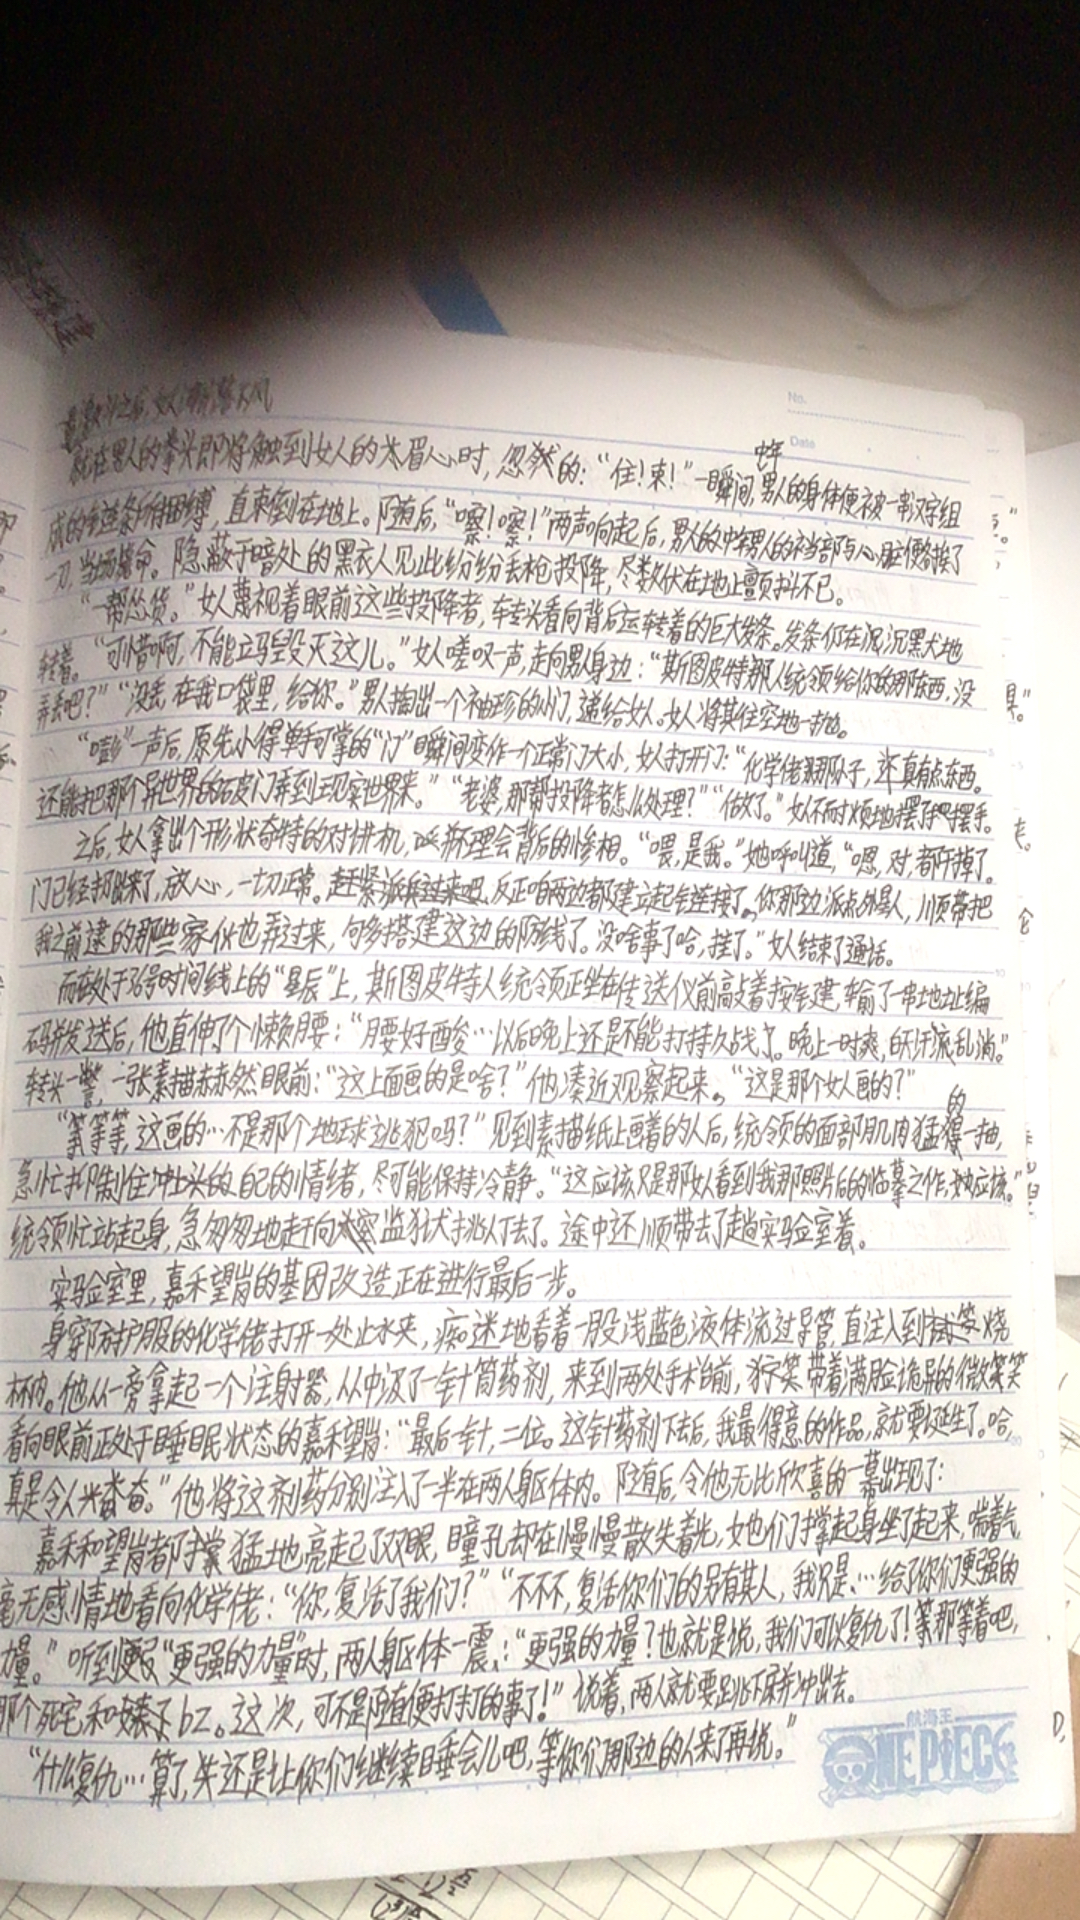 之后，女人
就在男人的拳头即将触到女人的眉心时，忽然的：“住！束！”一瞬间，男人的身体便被一串汉字组
成的链条所捆缚，直束倒在地上。随后，“嚓！嚓！”两声响起后，男人的裆部与心脏便各挨了
一刀，当场毙命。隐蔽于暗处的黑衣人见此纷纷丢枪投降，尽数伏在地上颤抖不已。
“一帮怂货。”女人蔑视着眼前这些投降者，转头看向背后运转着的巨大发条。发条仍在泥沉黑犬地
转着。“可惜啊，不能立马毁灭这儿。”女人嗟叹一声，走向男人身边：“斯图皮特那人统领给你的那东西，没
弄丢吧？”“没丢，在我口袋里，给你。”男人掏出一个袖珍的小门，递给女人。女人将其往空地一抛。
“嘭”一声后，原先小得单手可掌的“门”瞬间变作一个正常门大小，女人打开门：“化学佬那孙子，还真有点东西。
还能把那个异世界的破门弄到现实世界来。”“老婆，那帮投降者怎么处理？”“做了。”女人不耐烦地摆了摆手。
之后，女人拿出个形状奇特的对讲机，理会背后的惨相。“喂，是我。”她呼叫道，“嗯，对，都干掉了。
门已经扔出来了，放心，一切正常。赶紧派兵过来吧，反正咱两边都建立起链接了。你那边派点外星人，顺带把
我之前逮的那些家伙也弄过来，句多搭建这边的防线了。没啥事了哈，挂了。”女人结束了通话。
而在处于76号时间线上的“星辰”上，斯图皮特人统领正坐在传送仪前敲着按键，输了一串地址编
码并发送后，他直伸了个懒腰：“腰好酸…以后晚上还是不能打持久战了。晚上一时爽，白天汗流乱淌。”
转头一瞥，一张素描赫然眼前：“这上面画的是啥？”他凑近观察起来。“这是那个女人画的？”
“等等等，这画的…不是那个地球逃犯吗？”见到素描纸上画着的人后，统领的面部肌肉猛的一抽，
急忙抑制住冲上头的自己的情绪，尽可能保持冷静。“这应该只是那女人看到我那照片后的临摹之作，她应该。”
统领忙站起身，急匆匆地赶向监狱挑人去了。途中还顺带去了趟实验室看。
实验室里，嘉禾望岗的基因改造正在进行最后一步。
身穿防护服的化学佬打开一处止水夹，痴迷地看着一股浅蓝色液体流过导管，直注入到烧
杯内。他从一旁拿起一个注射器，从中汲了一针筒药剂，来到两处手术台前，带着满脸诡异的微笑
看向眼前正处于睡眠状态的嘉禾望岗：“最后一针，二位。这针药剂下去后，我最得意的作品，就要诞生了。哈，
真是令人兴奋。”他将这剂药分别注入了一半在两人躯体内。随后，令他无比欣喜的一幕出现了：
嘉禾和望岗都猛地亮起了双眼，瞳孔却在慢慢散失着光，她们撑起身坐了起来，喘着气，
毫无感情地看向化学佬：“你，复活了我们？”“不不不，复活你们的另有某人，我只是…给了你们更强的
力量。”听到“更强的力量”时，两人躯体一震，：“更强的力量？也就是说，我们可以复仇了！等那等着吧，
那个死宅和bz。这次，可不是随便打打的事了！”说着，两人就要跳下床并冲出去。
“什么复仇…算了，先还是让你们继续睡会儿吧，等你们那边的人来了再说。”
No.
Date
航海王
ONE PIECE